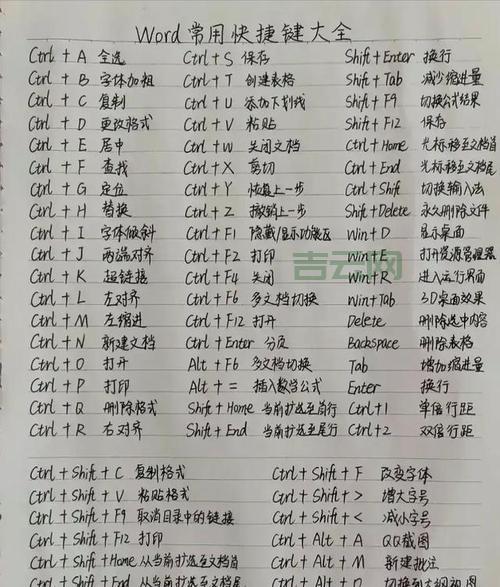 Word常用快捷键大全
Ctrl + A 全选 Ctrl + S 保存 Shift + Enter 换行
Ctrl + B 字体加粗 Ctrl + T 创建表格 Shift + Tab 减少缩进量
Ctrl + C 复制 Ctrl + U 添加下划线 Shift + F9 切换公式结果
Ctrl + D 更改格式 Ctrl + V 粘贴 Shift + F12 保存
Ctrl + E 居中 Ctrl + W 关闭文档 Ctrl + Home 光标移至文档首
Ctrl + F 查找 Ctrl + X 剪切 Ctrl + End 光标移至文档尾
Ctrl + G 定位 Ctrl + Y 恢复上一步 Ctrl + Shift 切换输入法
Ctrl + H 替换 Ctrl + Z 撤销上一步 Shift + Delete 永久删除文件
Ctrl + I 字体倾斜 Ctrl + F1 隐藏/显示功能区 Win + D 显示桌面
Ctrl + J 两端对齐 Ctrl + F2 打印 Win + E 打开资源管理器
Ctrl + K 超链接 Ctrl + F4 关闭 Win + R 进入运行界面
Ctrl + L 左对齐 Ctrl + F6 多文档切换 Win + Tab 3D桌面效果
Ctrl + M 左缩进 Ctrl + F12 打开 Delete 删除选中内容
Ctrl + N 新建文档 Ctrl + Enter 分页 Backspace 删除表格
Ctrl + O 打开 Alt + F6 多文档切换 Tab 增加缩进量
Ctrl + P 打印 Alt + = 插入数学公式 Enter 换行
Ctrl + Q 删除格式 Shift + Home 当前扩选至首行 Ctrl + 1 单倍行距
Ctrl + R 右对齐 Shift + End 当前扩选至尾行 Ctrl + 2 双倍行距
吉云网
Ctrl + Shift + C 复制格式 Ctrl + Shift + F 改变字体
Ctrl + Shift + V 粘贴格式 Ctrl + Shift + > 增大字号
Ctrl + Shift + F9 取消目录中的链接 Ctrl + Shift + < 减小字号
Ctrl + Shift + F12 打印 Ctrl + Alt + A QQ截图
Ctrl + Shift + Home 从当前扩选至文档首 Ctrl + Alt + M 新建批注
Ctrl + Shift + End 从当前扩选至文档尾 Ctrl + Alt + O 切换到大纲视图